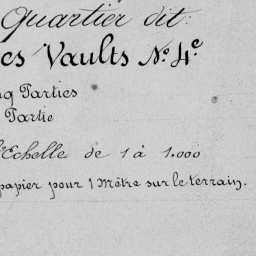 Quartier dit:
es Vaults N.º 4.e
nq Parties
Partie
l'Echelle de 1 à 1.000
papier pour 1 Mètre sur le terrain.